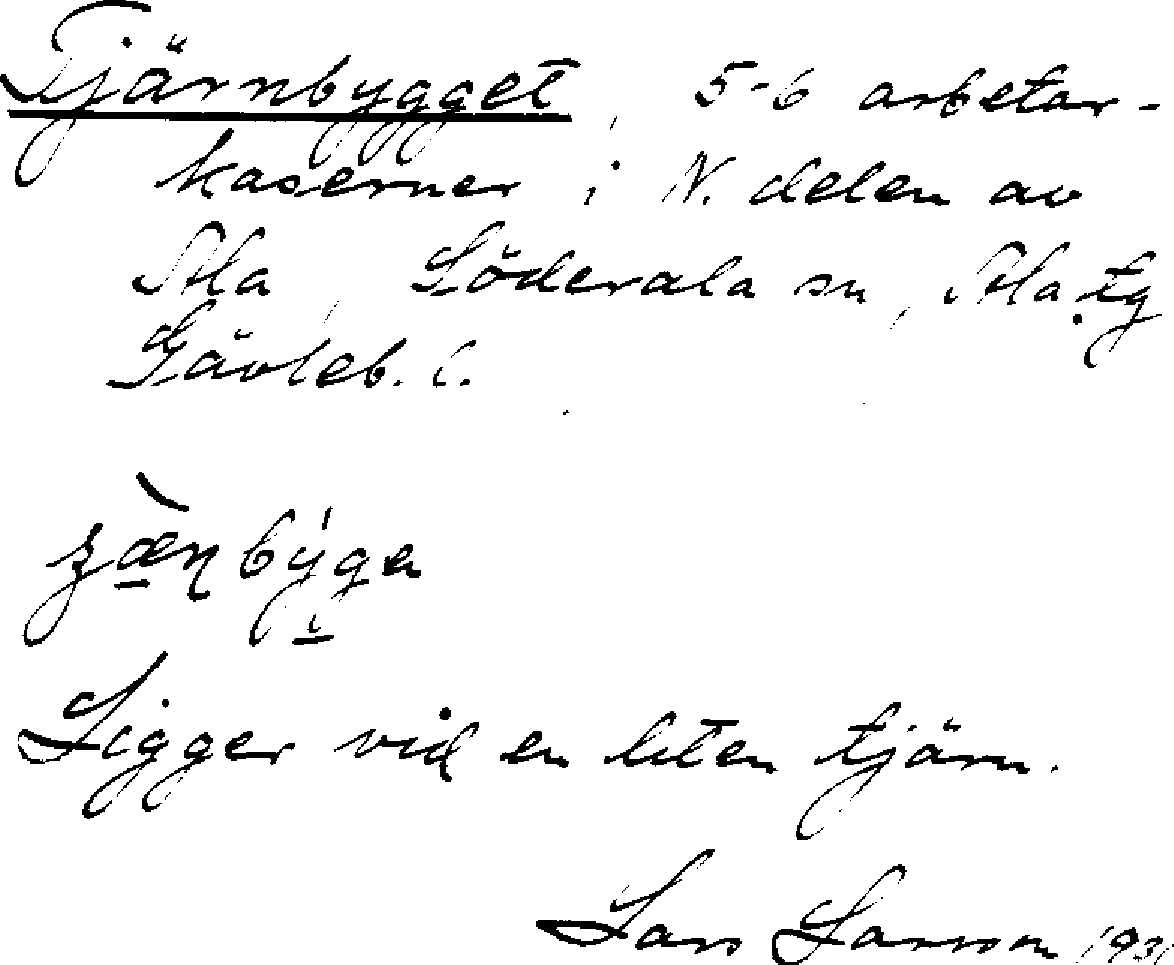 Tjärnbygget, 5-6 arbetar-
kaserner i N. delen av
Ala, Söderala sn, Ala tg
Gävleb. l.
Ligger vid en liten tjärn.
Lars Larsson 1931